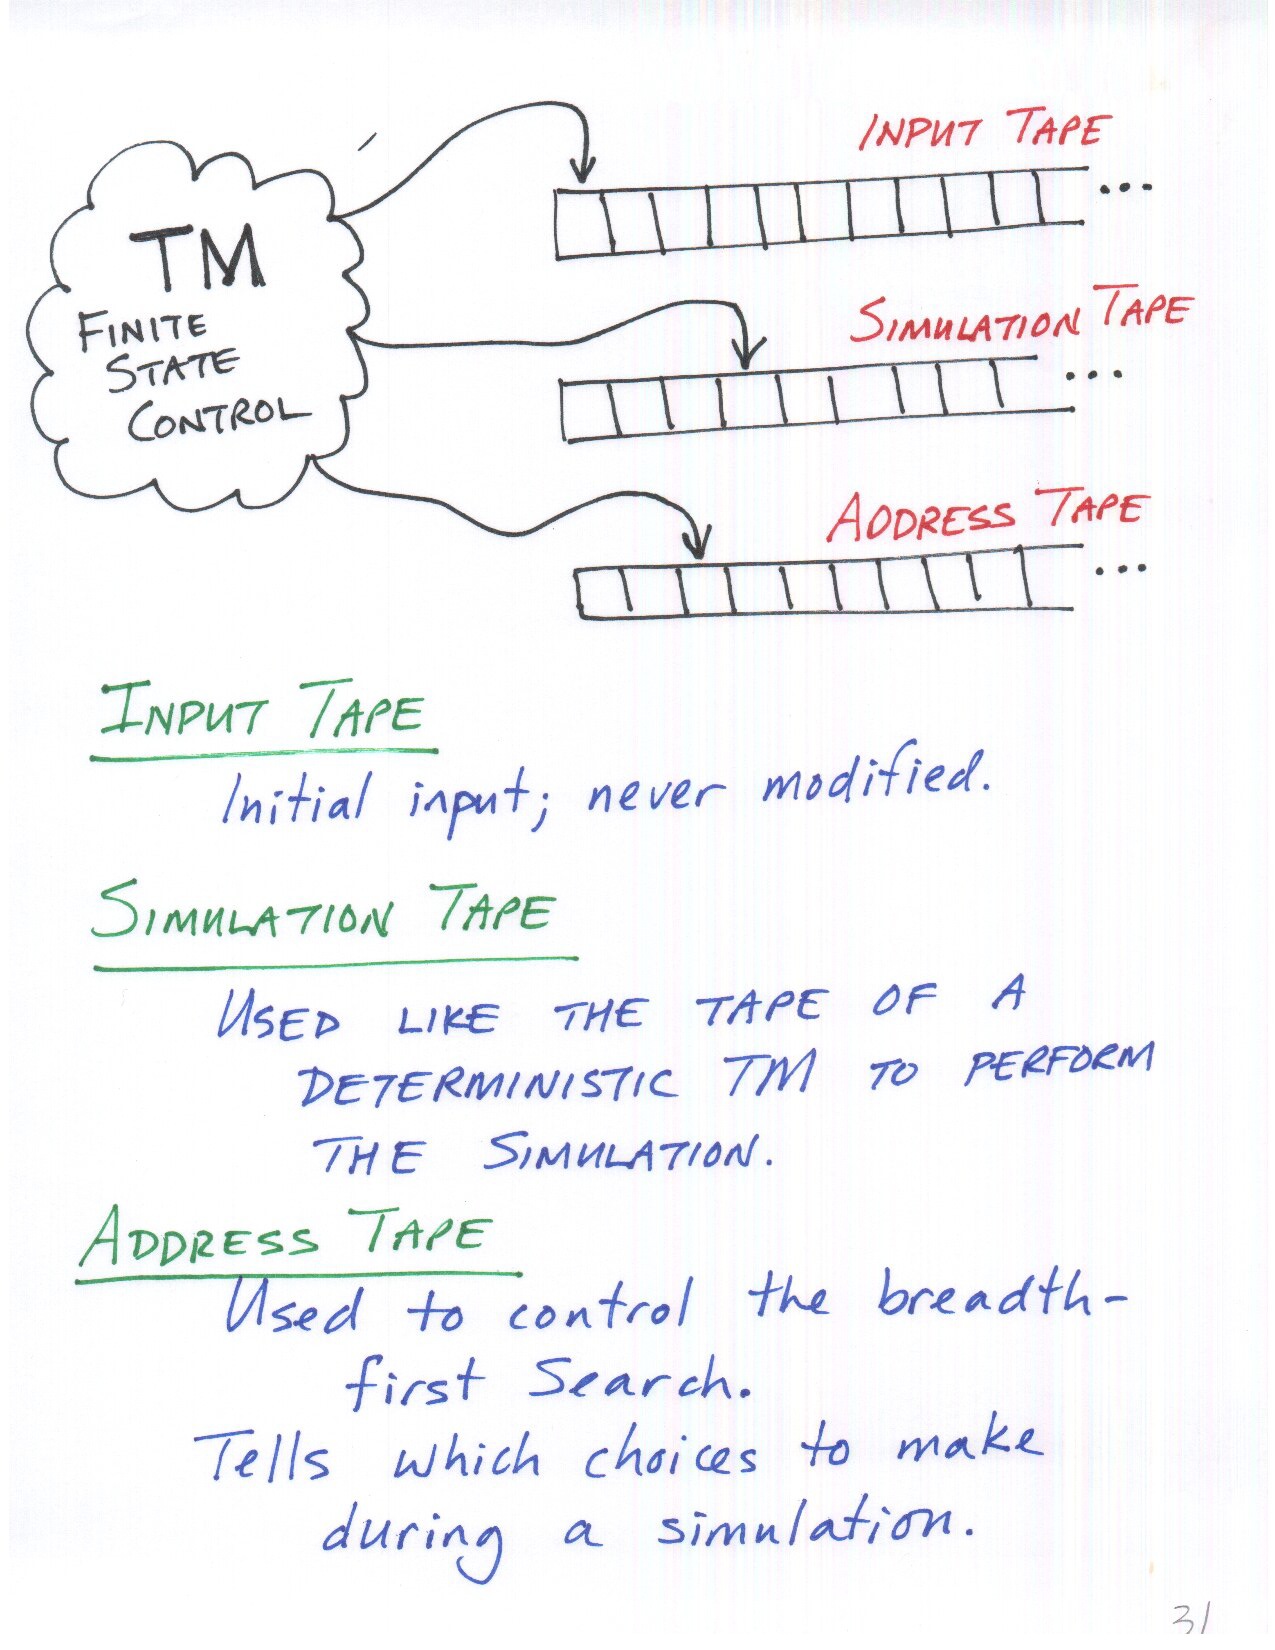 INPUT TAPE
TM
FINITE
STATE
CONTROL
...
SIMULATION TAPE
...
ADDRESS TAPE
...
INPUT TAPE
Initial input; never modified.
SIMULATION TAPE
USED LIKE THE TAPE OF A
DETERMINISTIC TM TO PERFORM
THE SIMULATION.
ADDRESS TAPE
Used to control the breadth-
first Search.
Tells which choices to make
during a simulation.
31